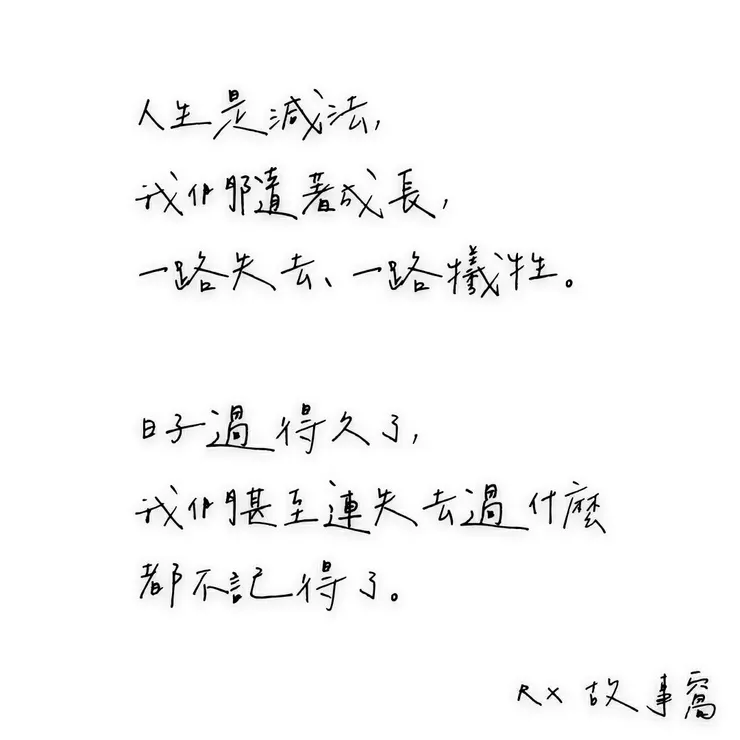 人生是減法,
我們隨著成長,
一路失去、一路犧牲。
日子過得久了,
我們甚至連失去過什麼
都不記得了。
RX 故事窩